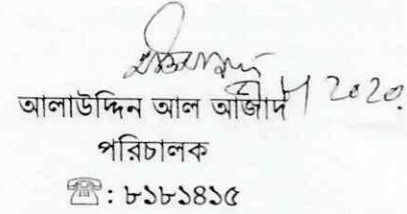 আলাউদ্দিন আল আজাদ
পরিচালক
☎: ৮১৮১৪১৫